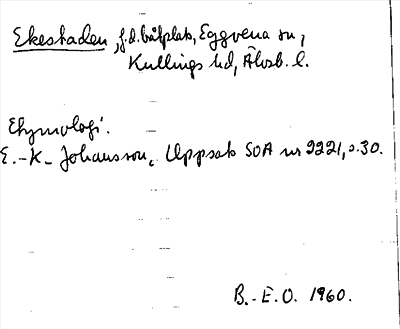 Ekestaden, f.d. båtplats, Eggvena sn,
Kullings hd, Älvsb. l.
Etymologi.
E.-K. Johansson, Uppsats SOA nr 2221, s. 30.
B.-E.O. 1960.